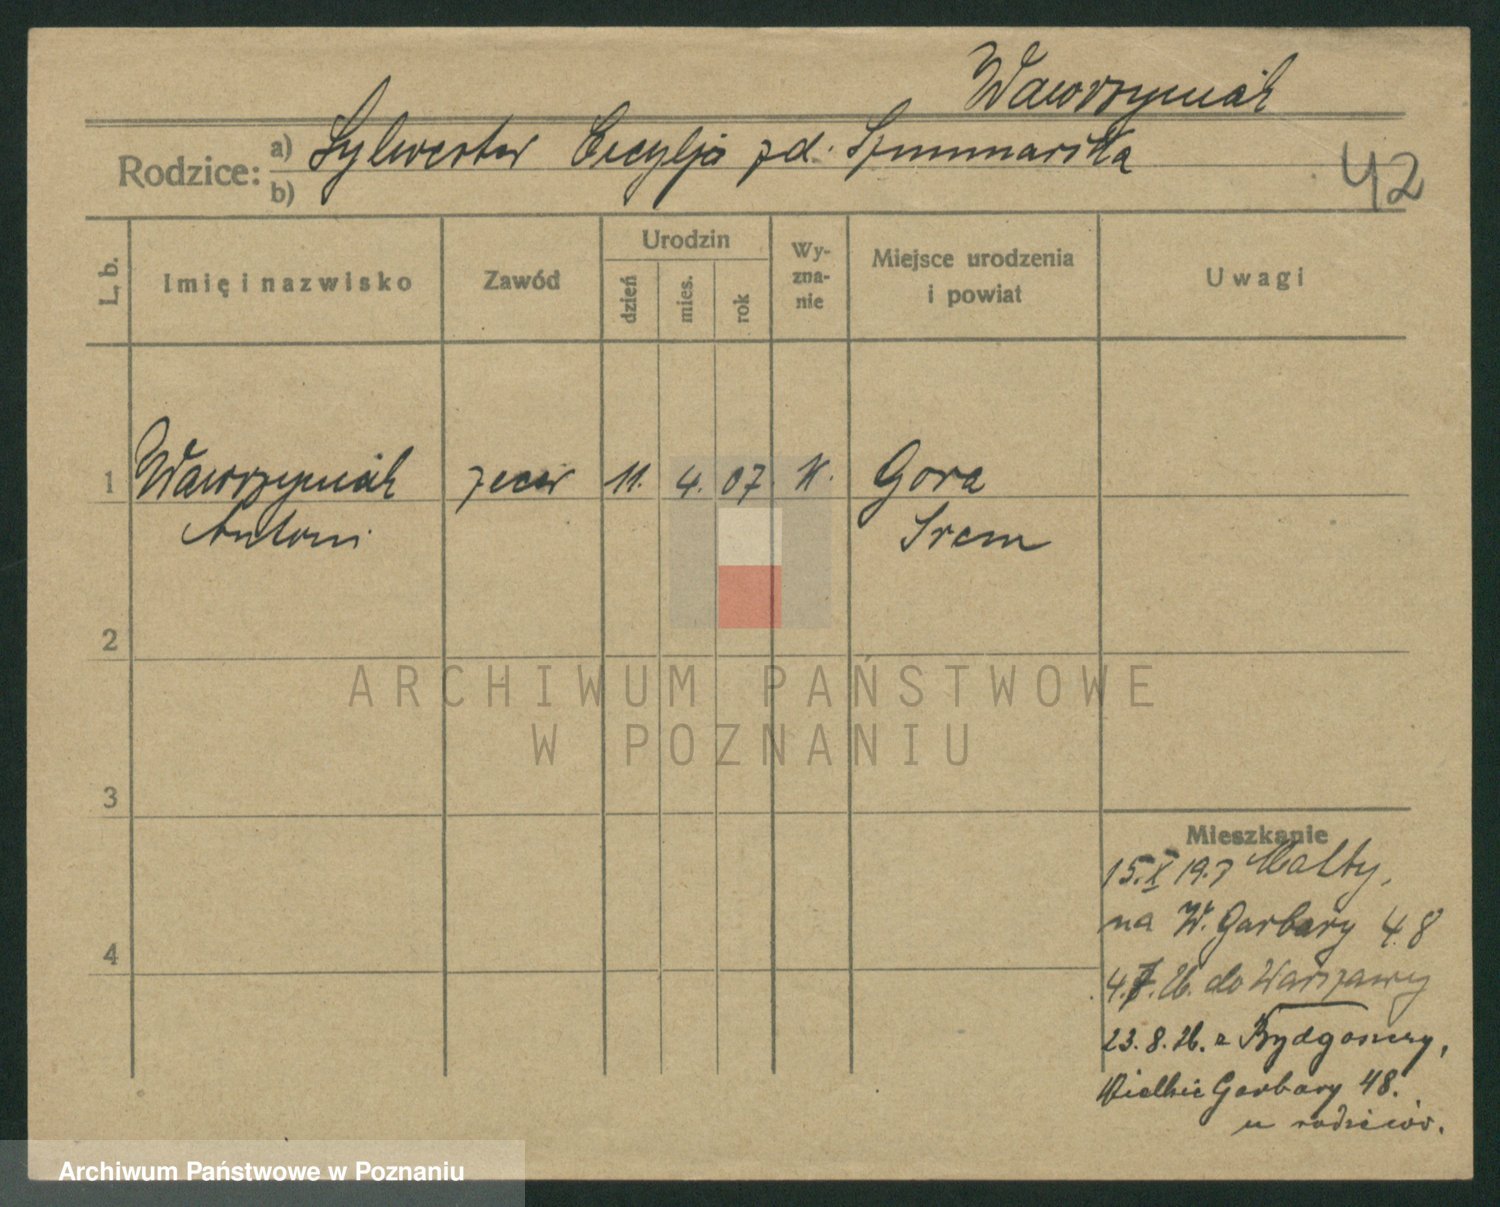 Wawrzyniak
Rodzice: a) Sylwester Cecylja zd. Szummarska
b)
42
L. b. Imię i nazwisko Zawód Urodzin dzień mies. rok Wyznanie Miejsce urodzenia i powiat Uwagi
1 Wawrzyniak zecer 11. 4. 07 K. Gora
Antoni Srem
2
ARCHIWUM PAŃSTWOWE
W POZNANIU
3
Mieszkanie
15.X 19.7
na W. Garbary 48
4
4.7.26. do Warszawy
23.8.26. z Bydgoszczy,
Wielkie Garbary 48.
u rodziców.
Archiwum Państwowe w Poznaniu